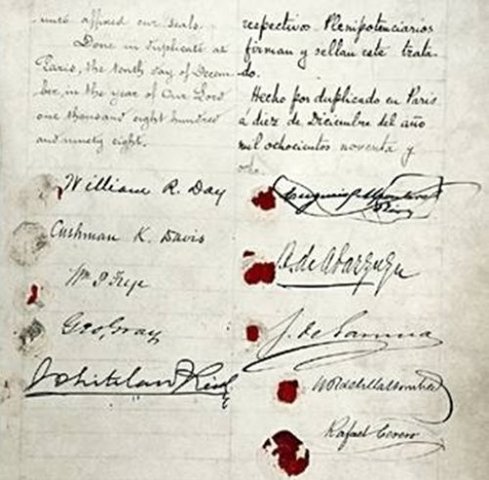 unto affixed our seals.
Done in duplicate at
Paris, the tenth day of Decem-
ber, in the year of Our Lord
one thousand eight hundred
and ninety eight.
William R. Day
Cushman K. Davis
Wm P Frye
Geo. Gray
Whitelaw Reid
respectivos Plenipotenciarios
firman y sellan este trata-
do.
Hecho por duplicado en Paris
á diez de Diciembre del año
mil ochocientos noventa y
ocho.
Eugenio Montero
Rios
B. de Abarzuza
J. de Garnica
W R de Villa Urrutia
Rafael Cerero